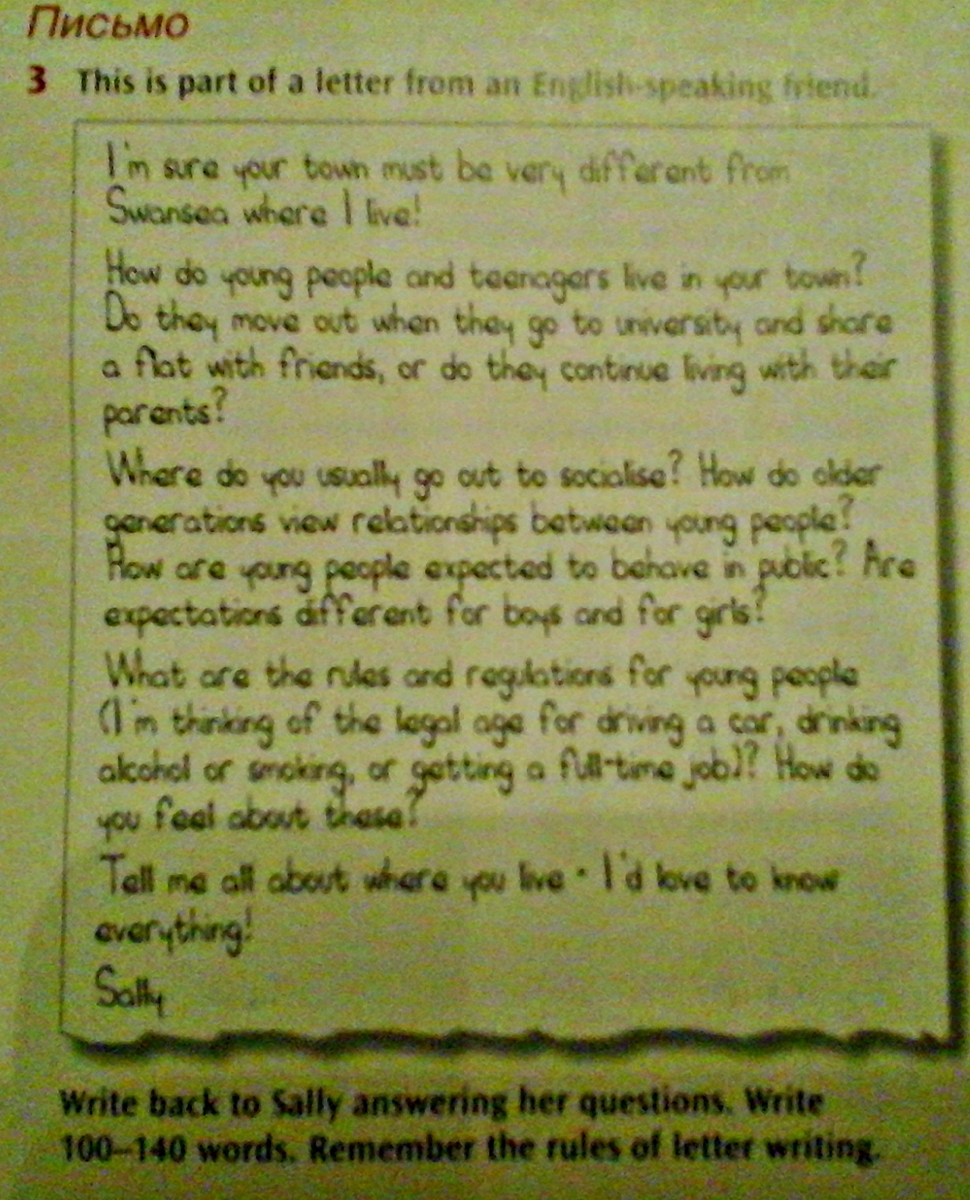 Письмо
3 This is part of a letter from an English-speaking friend.
I'm sure your town must be very different from
Swansea where I live!
How do young people and teenagers live in your town?
Do they move out when they go to university and share
a flat with friends, or do they continue living with their
parents?
Where do you usually go out to socialise? How do older
generations view relationships between young people?
How are young people expected to behave in public? Are
expectations different for boys and for girls?
What are the rules and regulations for young people
(I'm thinking of the legal age for driving a car, drinking
alcohol or smoking, or getting a full-time job)? How do
you feel about these?
Tell me all about where you live - I'd love to know
everything!
Sally
Write back to Sally answering her questions. Write
100–140 words. Remember the rules of letter writing.